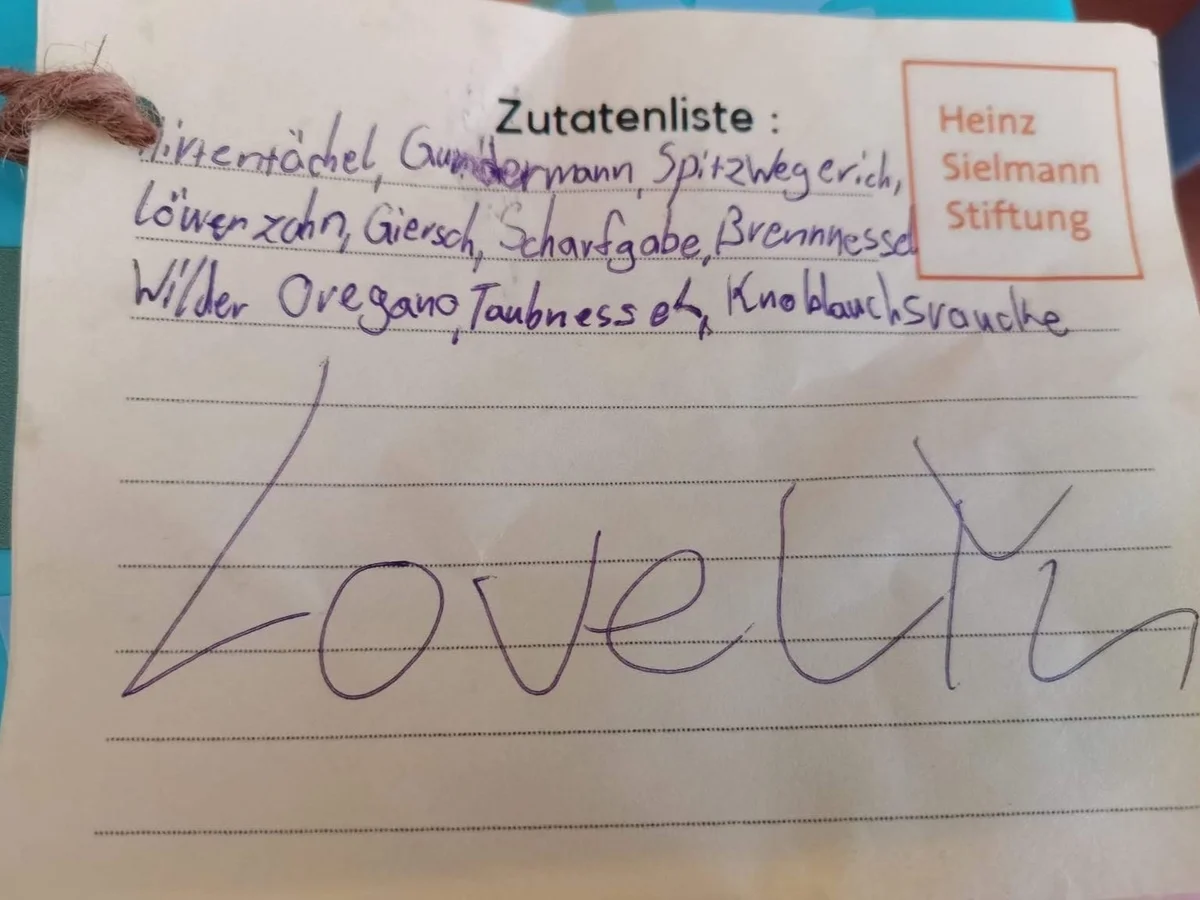 Zutatenliste :
Heinz
Sielmann
Stiftung
Hirtentächel, Gundermann, Spitzwegerich,
Löwenzahn, Giersch, Scharfgabe, Brennnessel
Wilder Oregano, Taubnessel, Knoblauchsrauche